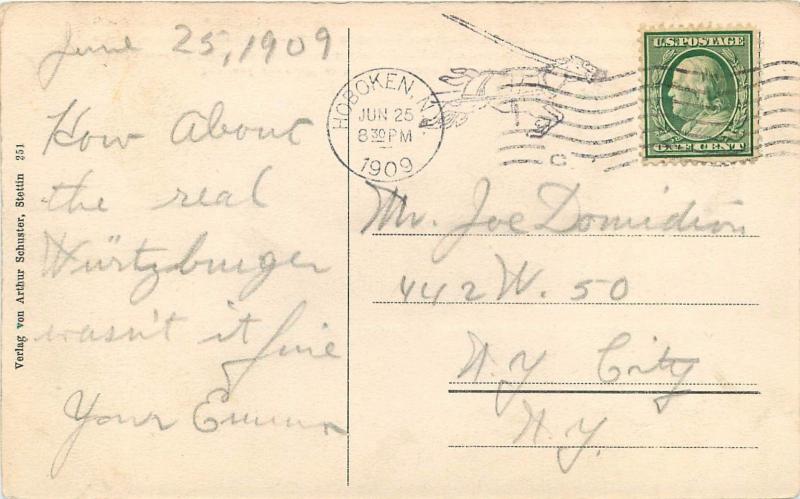 June 25, 1909
How About
the real
Würtzburger
wasn't it fine
Your Emma
Verlag von Arthur Schuster, Stettin 251
HOBOKEN, N.J.
JUN 25
8 30 PM
1909
C
U.S. POSTAGE
ONE CENT
Mr. Joe Domidion
442 W. 50
N.Y. City
N.Y.